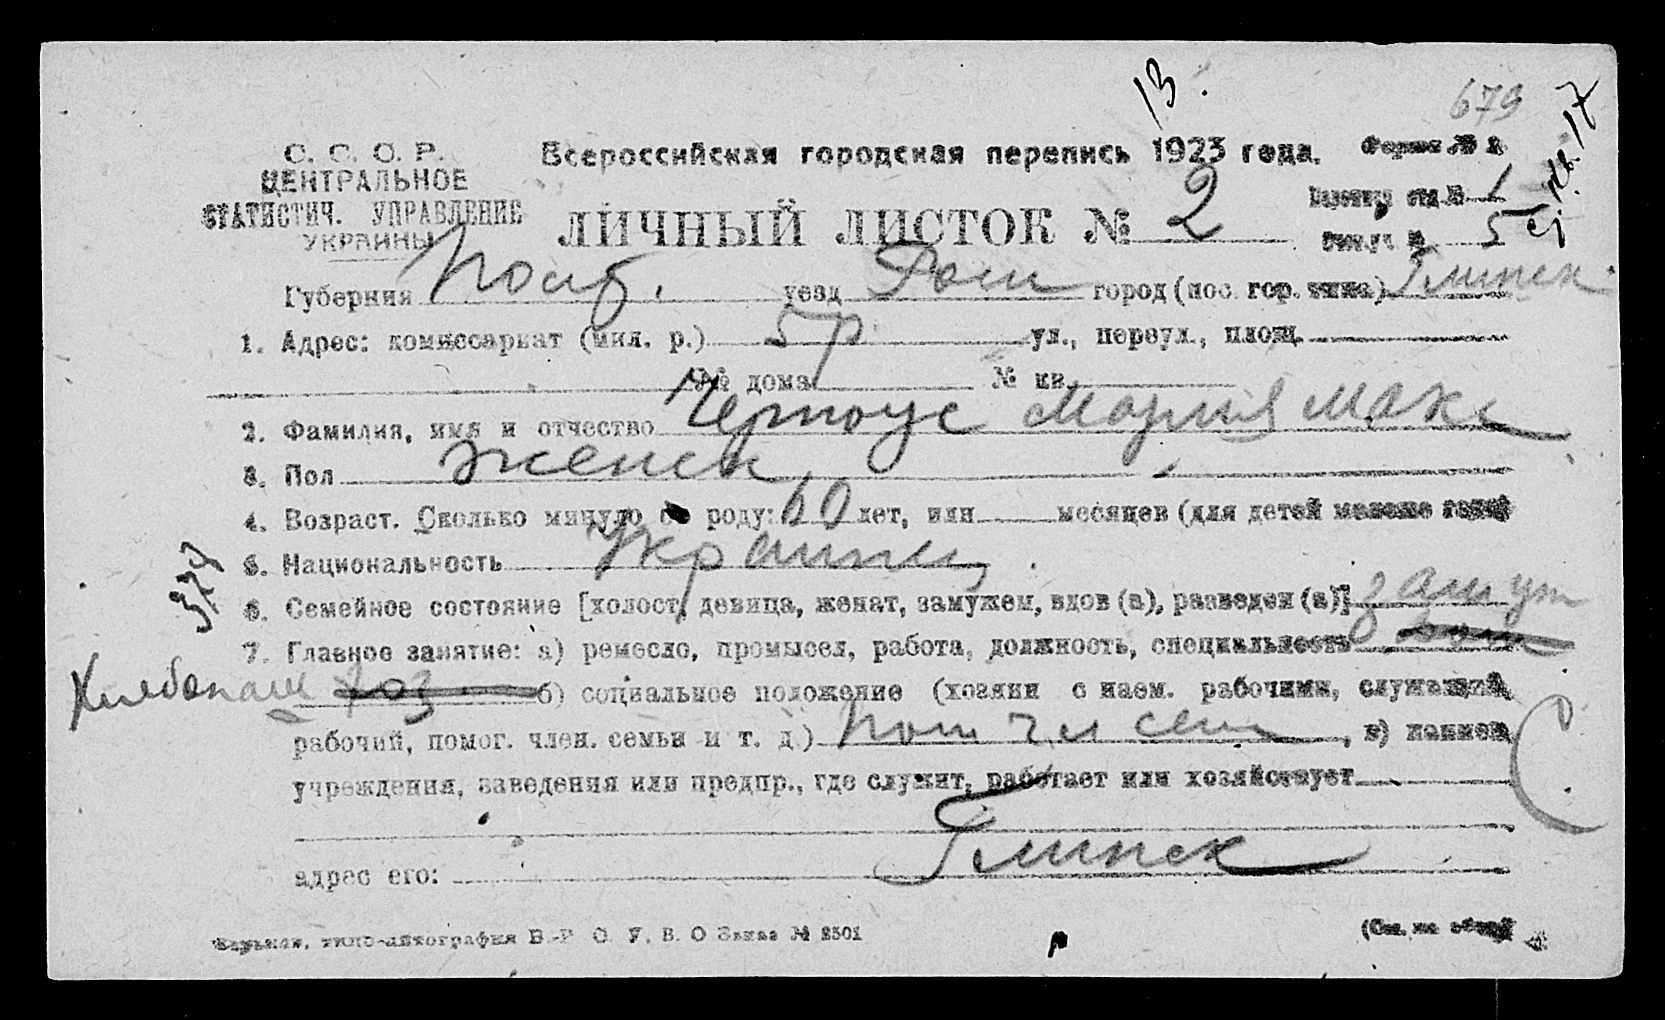 13.
679
С. С. С. Р.
ЦЕНТРАЛЬНОЕ
СТАТИСТИЧ. УПРАВЛЕНИЕ
УКРАИНЫ
Всероссийская городская перепись 1923 года.
Форма № 2
ЛИЧНЫЙ ЛИСТОК № 2
отд. № 1
5
17
Губерния Полт. уезд Ром город (пос. гор. типа) Глинск
1. Адрес: комиссариат (мил. р.) 5 р ул., переул., площ.
№ дома № кв.
2. Фамилия, имя и отчество Черноус Мария Макс
3. Пол Женск
4. Возраст. Сколько минуло от роду: 60 лет, или месяцев (для детей моложе года)
5. Национальность Украинц
6. Семейное состояние [холост, девица, женат, замужем, вдов (а), разведен (а)] замуж
7. Главное занятие: а) ремесло, промысел, работа, должность, специальность
Хлебопаш б) социальное положение (хозяин с наем. рабочими, служащий,
рабочий, помог. член. семьи и т. д.) пом чл сем, в) наимен.
учреждения, заведения или предпр., где служит, работает или хозяйствует
Глинск
адрес его:
Харьков, типо-литография В.-Р. О. У. В. О Заказ № 2501
(См. на обор.)